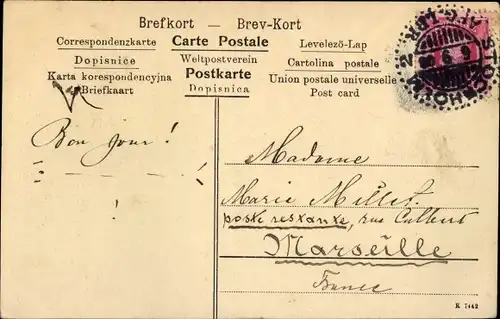 Brefkort — Brev-Kort
Correspondenzkarte Carte Postale Levelező-Lap
Dopisnice Weltpostverein Cartolina postale
Karta korespondencyjna Postkarte Union postale universelle
Briefkaart Dopisnica Post card
STOCKHOLM
Bon jour!
!
Madame
Marie Millet.
poste restante, rue Colbert
Marseille
France
K 7442